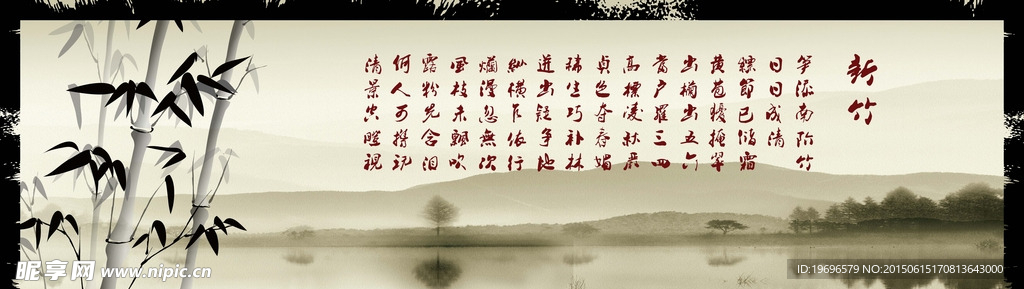 新竹
笋添南阶竹
日日成清
縹節已儲霜
黄苞猶掩翠
出欄出五六
當户羅三四
高標凌秋嚴
貞色奪春媚
稀生巧补林
迸出疑争地
縱横乍依行
爛漫忽無次
風枝未飄吹
露粉先含泪
何人可携玩
清景空瞪視
昵享网 www.nipic.cn
ID:19696579 NO:20150615170813643000